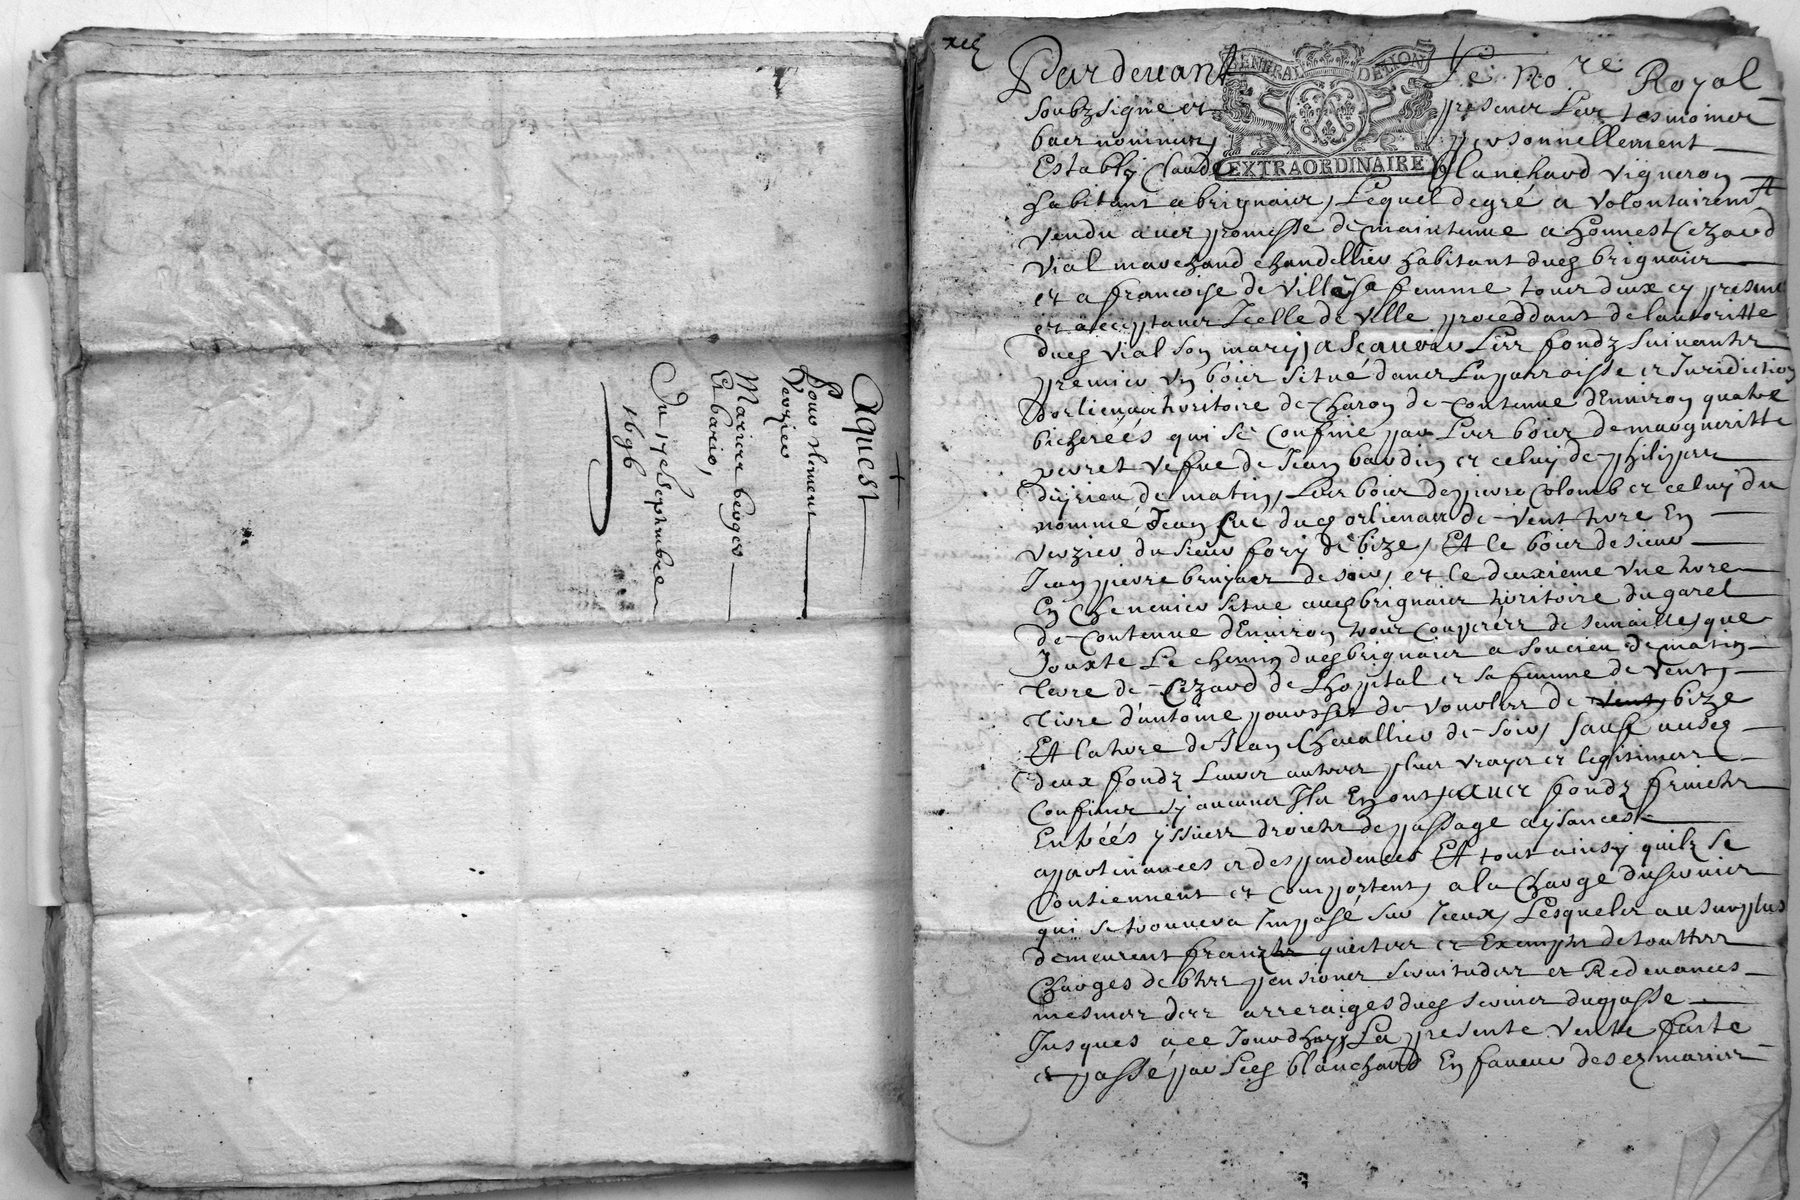 Aquest
+
Pour Clement
Verzier
Mariex berger
Et bario,
Du 17e Septembre
1696
Pardevant Le No.re Royal
GENERAL DE LION
EXTRAORDINAIRE
soubzsigne et presener Ler tesmoiner
baer nommer, personnellement
Estably Claude blanchard vigneron
habitant a brignaier, Lequel de gré a volontairemt
vendu auer promesse de maintenue a honnest Cezard
Vial marchand chandellier habitant dud brignaier
et a francoise de Ville sa femme touer deux cy presene
et acceptaner Icelle de Ville proceddant de lautoritte
dud Vial son mary, a scauoir Ler fondz suivantz
premier Un boier situé dаner La parroisse et Juridiction
dorlienaer territoire de Charon de Contenue d'Environ quatre
bicherées qui se Confine par Ler boier de margueritte
perret vefue de Jean bardin et celuy de philippe
de matin, Ler boier de pierre Colomb et celuy du
nommé Jean dud orlienaer de Vent terre En
verzier du sieur fory de bize, Et le boier de sieur
Jean pierre de soir, et le deuxieme Une terre
En Chenevier Situe aud brignaier territoire du garel
de Contenue d'Environ trois Couperer de semailles que
Jouxte Le chemin dud brignaier a Soucieu de matin
terre de Cezard de Lhopital et sa femme de Vent,
terre d'antoine de vourler de vent bize
Et la terre de Jean Chevallier de soir, sauf ausd
deux fondz Leurer auttrer plus vrayer et legitimer
Confiner sy aucuner Ilz En ont, auer fondz fruictz
Entrées yssuer droictz de passage aysances
appartenances et despendences Et tout ainsy quilz se
Contiennent et Comportent, a la Charge du servier
qui se trouuera Imposé sur Iceux, Lesqueler au surplus
demeurent franchz quictter et Exemptz de touttez
Charges debter pensioner servituder et Redevances
mesmer der arreraiges dud servier du passe
Jusques a ce Jourdhuy, La presente vente faite
et passé par led blanchard En faveur desd marier